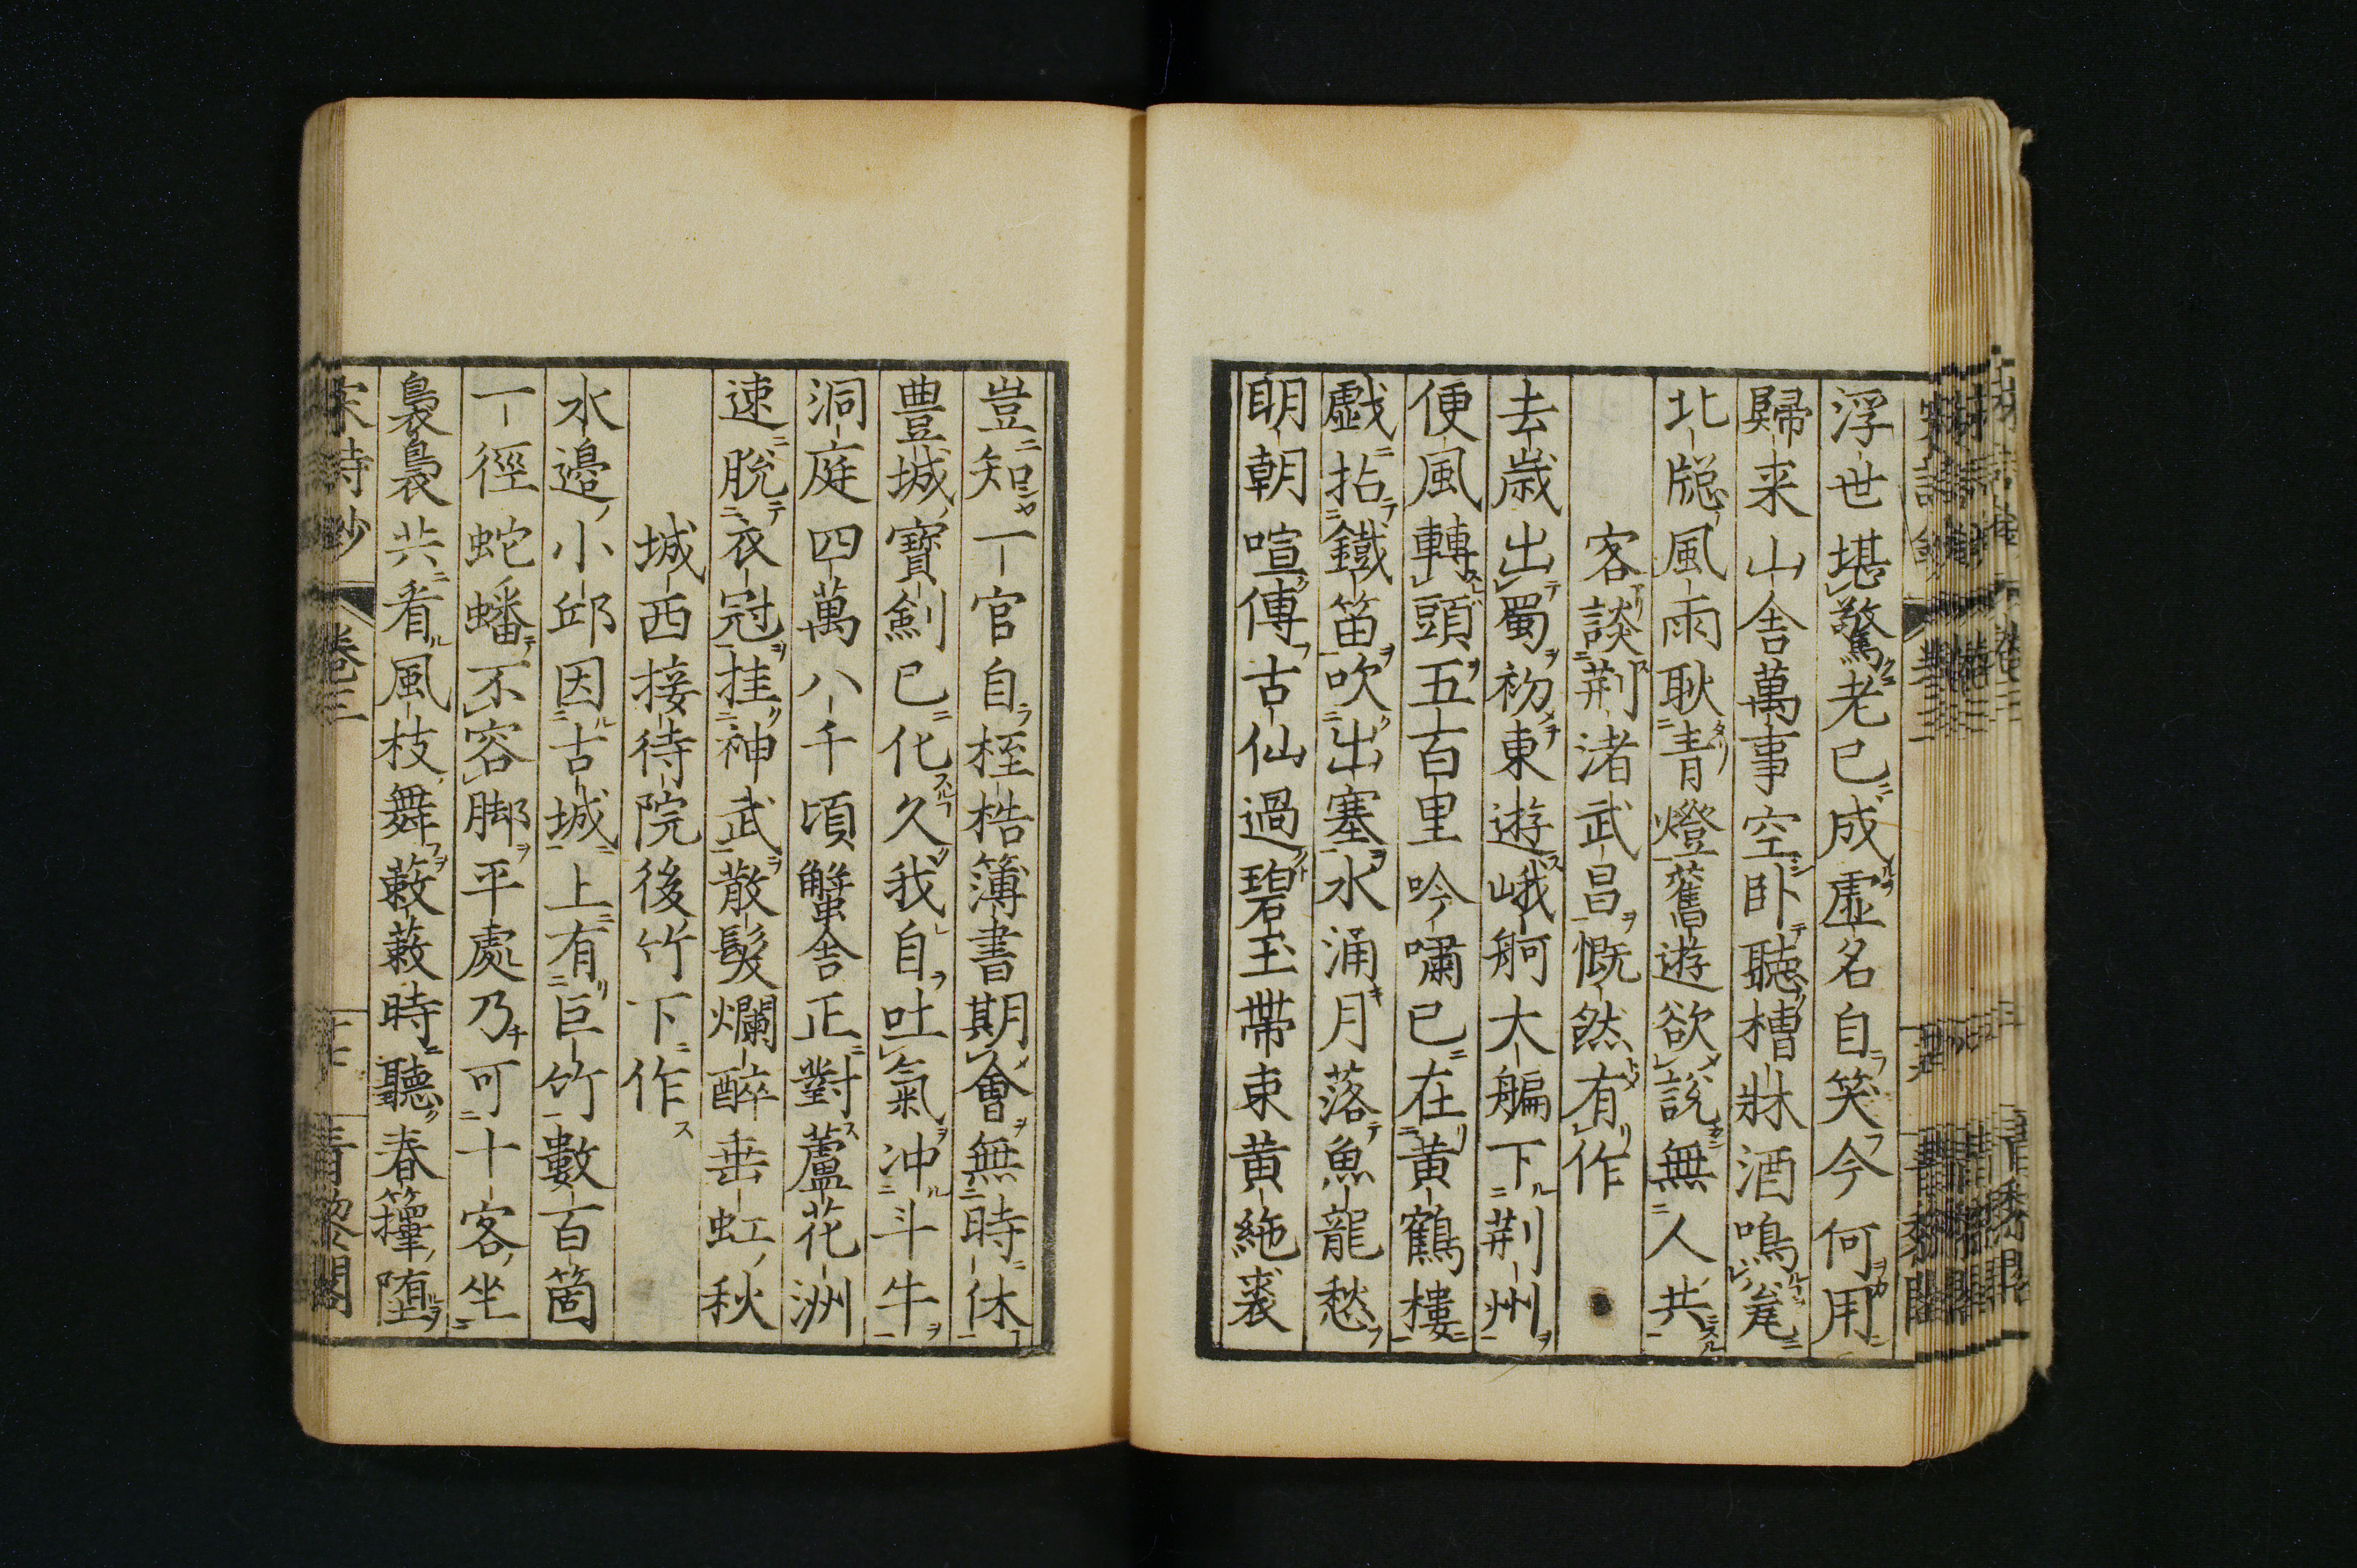 浮世堪驚老已成虛名自笑今何用
歸来山舎萬事空卧聽槽牀酒鳴甕
北牕風雨耿青燈舊遊欲說無人共
客談荆渚武昌慨然有作
去歲出蜀初東遊峨舸大艑下荆州
便風轉頭五百里吟嘯已在黄鶴樓
戯拈鐵笛吹出塞水涌月落魚龍愁
朙朝喧傳古仙過碧玉帶束黄絁裘
豈知一官自桎梏簿書期會無時休
豊城寶劍已化久我自吐氣冲斗牛
洞庭四萬八千頃蟹舎正對蘆花洲
速脫衣冠挂神武散髮爛醉垂虹秋
城西接待院後竹下作
水邉小邱因古城上有巨竹數百箇
一徑蛇蟠不容脚平處乃可十客坐
裊裊共看風枝舞蔌蔌時聽春籜堕
宋詩鈔 卷三 青黎閣